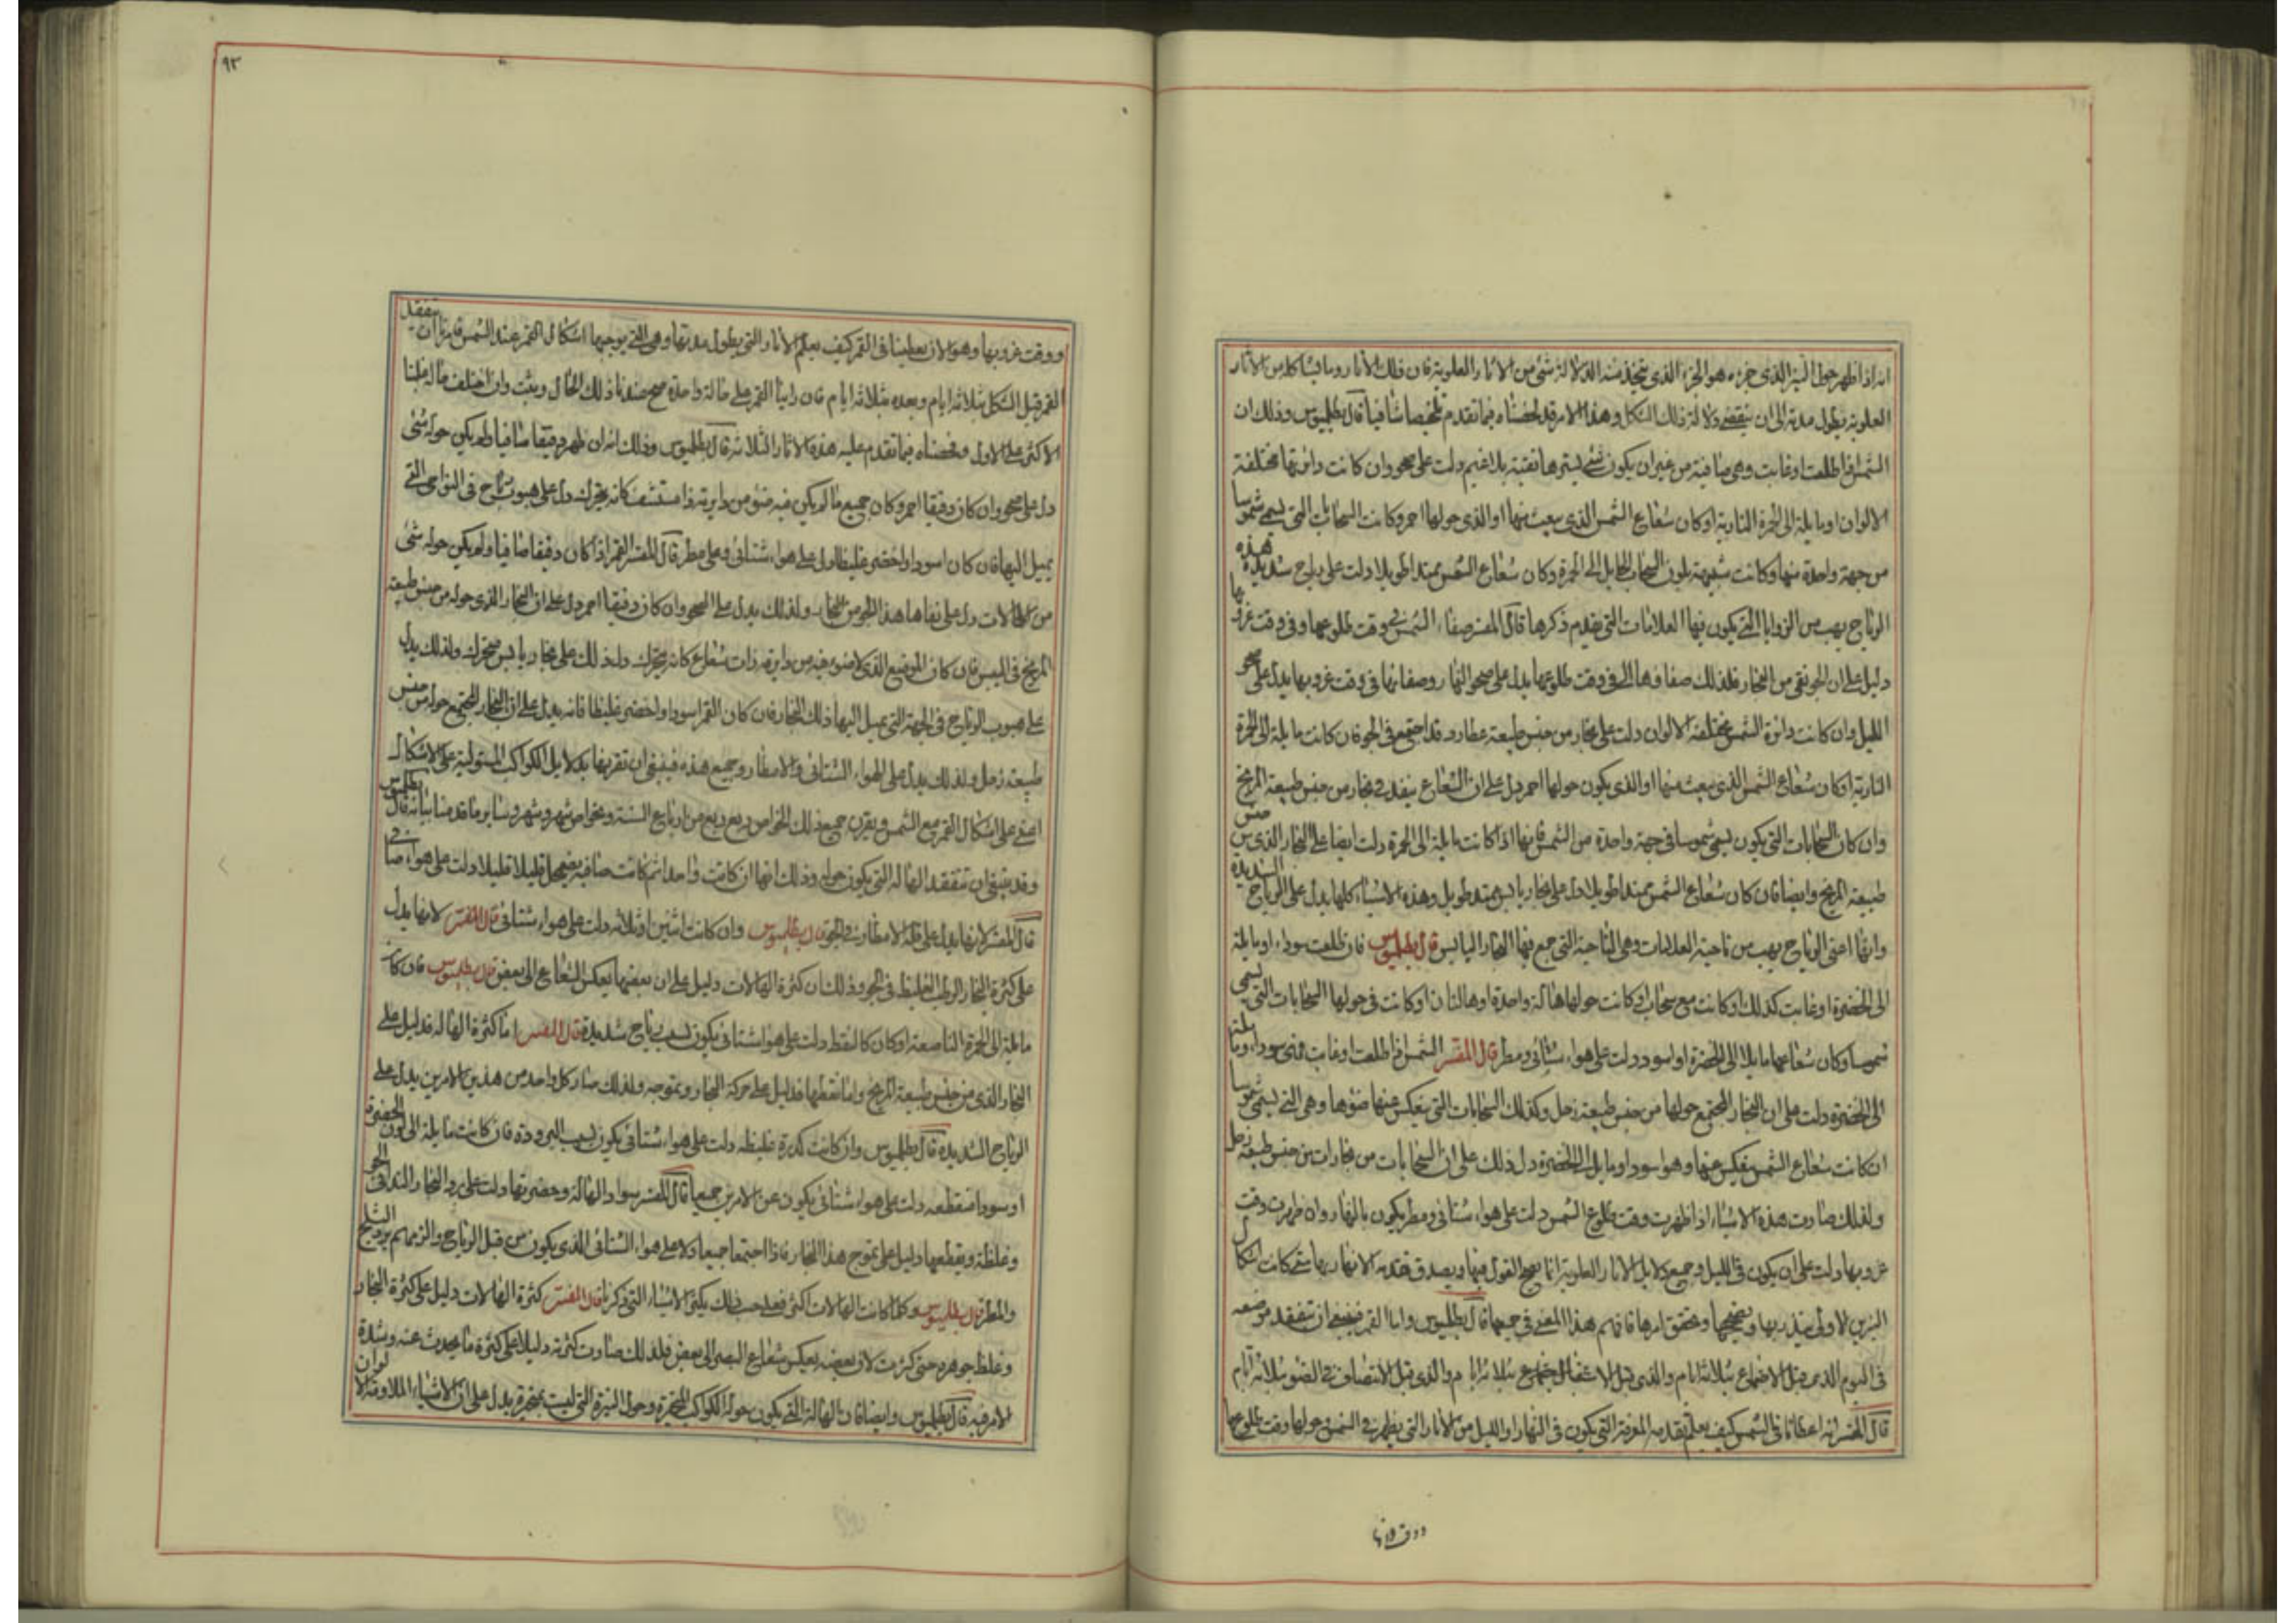 انه اذا ظهر حول النير الذى جزءه هو الجزء الذى يتخذ منه الدلالة شئ من الاثار العلوية فان تلك الاثار وما يشاكله من الاثار
العلوية يطول مدته الى ان ينقضى دلالة ذلك الشكل وهذا الامر قد لخصناه فيما تقدم تلخيصا شافيا قال بطلميوس وذلك ان
الشمس اذا طلعت او غابت وهى صافية من غير ان يكون شئ يسترها نقية بلا غيم دلت على صحو وان كانت دائرتها مختلفة
الالوان او مايلة الى الحمرة النارية او كان شعاع الشمس الذى يبعث منها او الذى حولها احمر وكانت السحابات التى يسمى شموسا
من جهة واحدة منها وكانت شبيهة بلون السحاب المايل الى الحمرة وكان شعاع الشمس ممتدا طويلا دلت على رياح شديدة وهذه
الرياح يهب من الزوايا التى يكون فيها العلامات التى يقدم ذكرها قال المفسر صفاء الشمس فى وقت طلوعها وفى وقت غروبها
دليل على ان الجو نقى من البخار فلذلك صفاوها فى وقت طلوعها يدل على صحو النهار وصفائها فى وقت غروبها يدل على صحو
الليل وان كانت دائرة الشمس مختلفة الالوان دلت على بخار من جنس طبيعة عطارد قد اجتمع فى الجو فان كانت مايلة الى الحمرة
النارية او كان شعاع الشمس الذى يبعث منها او الذى يكون حولها احمر دل على ان الشعاع ينفذ فى بخار من جنس طبيعة المريخ
وان كان السحابات التى يكون يسمى شموسا فى جهة واحدة من الشمس فانها اذا كانت مايلة الى الحمرة دلت ايضا على البخار الذى من جنس
طبيعة المريخ وايضا فان كان شعاع الشمس ممتدا طويلا دل على بخار يابس ممتد طويل وهذه الاشياء كلها يدل على الرياح الشديدة
وانها اعنى الرياح يهب من ناحية العلامات وهى الناحية التى جمع فيها البخار اليابس قال بطلميوس فان طلعت سوداء او مايلة
الى الخضرة او غابت كذلك او كانت مع سحاب او كانت حولها هالة واحدة او هالتان او كانت فى حولها السحابات التى يسمى
شموسا وكان شعاعها مايلا الى الخضرة او اسود دلت على هواء شتائى ومطر قال المفسر الشمس اذا طلعت او غابت وهى سوداء ومايلة
الى الخضرة دلت على ان البخار المجتمع حولها من جنس طبيعة زحل وكذلك السحابات التى ينعكس عنها ضوها وهى التى يسمى شموسا
ان كانت شعاع الشمس ينعكس عنها وهو اسود او مايل الى الخضرة دل ذلك على ان السحابات من بخارات من جنس طبيعة زحل
ولذلك صارت هذه الاشياء اذا ظهرت وقت طلوع الشمس دلت على هواء شتائى ومطر يكون بالنهار وان ظهرت وقت
غروبها دلت على ان يكون فى الليل وجميع دلايل الاثار العلوية انما يصح القول فيها ويصدق تقدمة الانذار بها متى كانت اشكال
النيرين الاولى ينذر بها ويصححها ويحقق امرها فافهم هذا المعنى فى جميعها قال بطلميوس واما القمر فينبغى ان تتفقد موضعه
فى اليوم الذى قبل الاجتماع بثلاثة ايام والذى قبل الاستقبال بثلاثة ايام والذى قبل الانتصاف فى الضو بثلاثة ايام
قال المفسر انه اعطانا فى الشمس كيف يعلم تقدمة المعرفة التى يكون فى النهار او الليل من الاثار التى يظهر فى الشمس وحولها وقت طلوعها
ووقت غروبها
٩٢
ووقت غروبها وهو الان يعلمنا فى القمر كيف يعلم الاثار التى يطول مدتها وهى التى يوجبها اشكال القمر عند الشمس فامرنا ان يتفقد
القمر قبل الشكل بثلاثة ايام وبعده بثلاثة ايام فان راينا القمر على حالة واحدة صح عندنا ذلك الحال ويثبت وان اختلف حاله غلبنا
الاكثر على الاول ولخصناه فيما تقدم عليه هذه الاثار الثلاثة قال بطلميوس وذلك انه ان ظهر دقيقا صافيا ولم يكن حوله شئ
دل على صحو وان كان دقيقا احمر وكان جميع ما لم يكن فيه ضو من دايرته ذا مستشف كانه يتحرك دل على هبوب رياح فى النواحى التى
يميل اليها فان كان اسود او اخضر غليظا دل على هواء شتائى وعلى مطر قال المفسر القمر اذا كان دقيقا صافيا ولم يكن حوله شئ
من الهالات دل على نقاء هذا الجو من البخار ولذلك يدل على الصحو وان كان دقيقا احمر دل على ان البخار الذى حوله من جنس طبيعة
المريخ فى اليبس فان كان الموضع الذى لا ضوء فيه من دايرته ذات شعاع كانه يتحرك دل ذلك على بخار يابس متحرك ولذلك يدل
على هبوب الرياح فى الجهة التى يميل اليها ذلك البخار فان كان القمر اسود او اخضر غليظا فانه يدل على ان البخار المجتمع حوله من جنس
طبيعة زحل ولذلك يدل على الهواء الشتائى والامطار وجميع هذه فينبغى ان تقرنها بدلايل الكواكب المستولية على الاشكال
اعنى على اشكال القمر مع الشمس ويقرن جميع ذلك بخواص ربع ربع من ارباع السنة وبخواص شهر وشهر وسائر ما قدمنا بيانه قال بطلميوس
وقد ينبغى ان تتفقد الهالة التى يكون حوله وذلك انها ان كانت واحدا ثم كانت صافية يضمحل قليلا قليلا دلت على هواء صافى
قال المفسر لانها يدل على قلة الامطار فى الجو قال بطلميوس وان كانت اثنين او ثلاثه دلت على هواء شتائى قال المفسر لانها يدل
على كثرة البخار الرطب الغليظ فى الجو وذلك ان كثرة الهالات دليل على ان بعضها يعكس الشعاع الى بعض قال بطلميوس فان كانت
مايلة الى الحمرة الناصعة او كان كالنقط دلت على هواء شتائى يكون بسبب رياح شديدة قال المفسر اما كثرة الهالة فدليل على
البخار الذى من جنس طبيعة المريخ واما نقطها فدليل على حركة البخار وتموجه ولذلك صار كل واحد من هذين الامرين يدل على
الرياح الشديدة قال بطلميوس وان كانت كدرة غليظة دلت على هواء شتائى يكون بسبب البرودة فان كانت مايلة الى لون الخضرة
او سودا منقطعه دلت على هواء شتائى يكون عن الامرين جميعا قال المفسر سواد الهالة وخضرتها دلت على برد البخار الذى فى الجو
وغلظه وتقطعها دليل على تموج هذا البخار فاذا اجتمعا جميعا دلا على هواء الشتائى الذى يكون من قبل الرياح والزمهرير والثلج
والمطر قال بطلميوس وكلما كانت الهالات اكثر فعلى حسب ذلك يكثر الاشياء التى ذكرنا قال المفسر كثرة الهالات دليل على كثرة البخار
وغلظ جوهره حتى كثرت لان بعضه يعكس شعاع البصر الى بعض فلذلك صارت كثرته دليلا على كثرة ما يحدث عنه وشدة
الامر فيه قال بطلميوس وايضا فان الهالة التى يكون حول الكواكب المتحيرة وحول النيرة التى ليست بمتحيرة يدل على ان الاشياء الملاومة لالوان